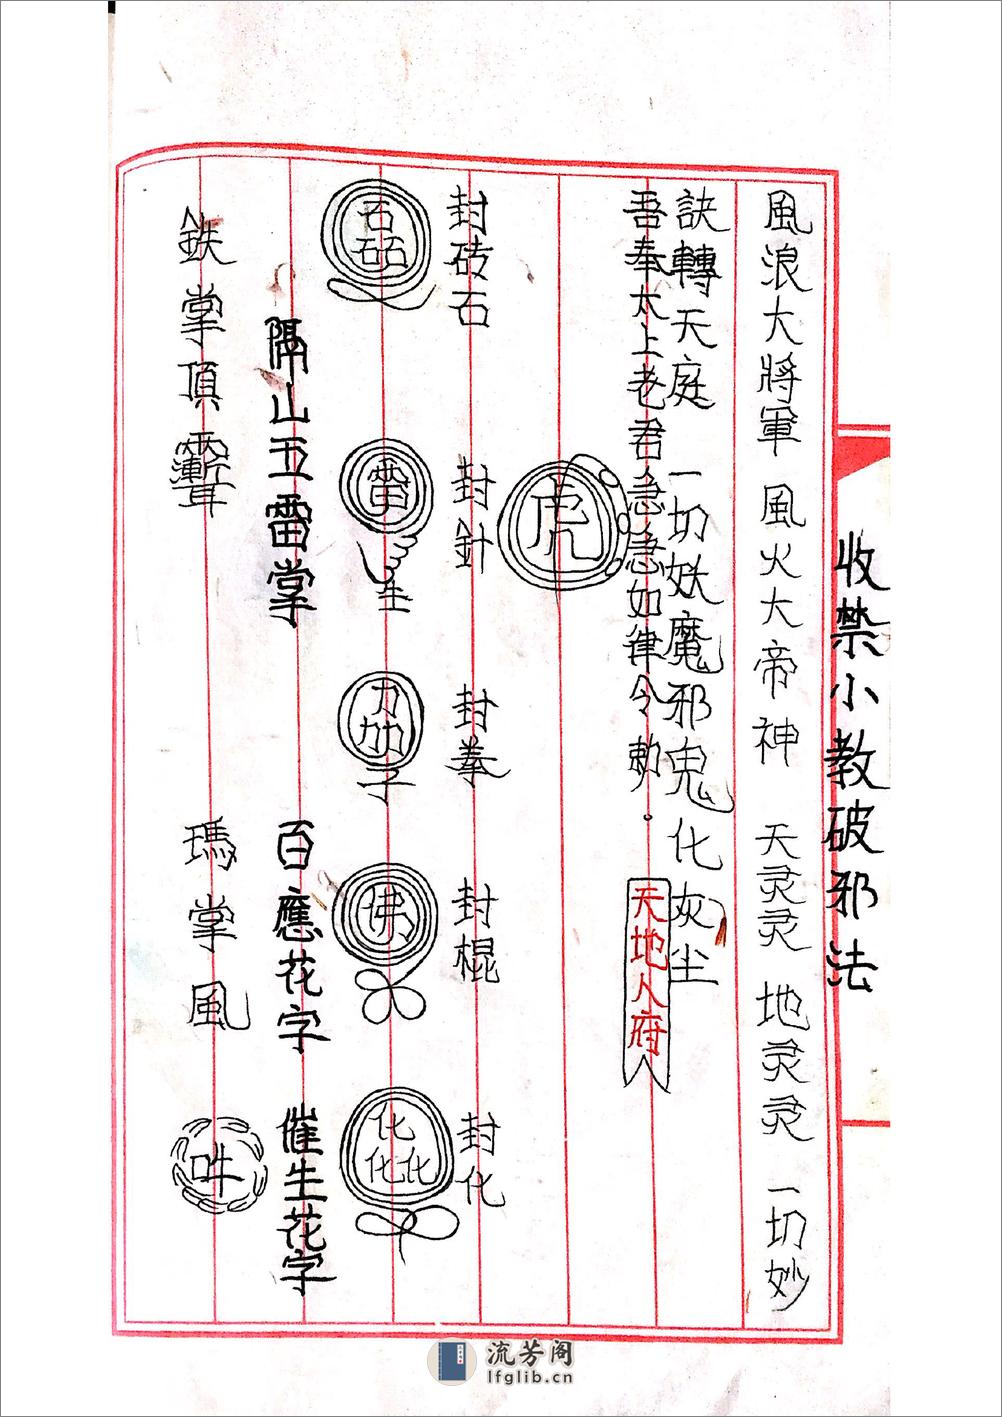 收禁小教破邪法
風浪大將軍 風火大帝神 天灵灵 地灵灵 一切妙
訣轉天庭 一切妖魔邪鬼化灰尘
吾奉太上老君急急如律令勅。
天地人府
虎
封砖石 封針 封拳 封棍 封化
石石石
生
力力力口子
佛
化化化
隔山五雷掌 百應花字 催生花字
鉄掌頂 瑪掌風
吽
流芳阁
lfglib.cn